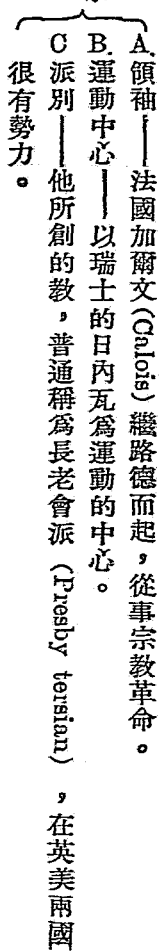 A.領袖——法國加爾文(Calois)繼路德而起，從事宗教革命。
B.運動中心——以瑞士的日內瓦爲運動的中心。
C派別——他所創的教，普通稱爲長老會派(Presby tersian)，在英美兩國
很有勢力。